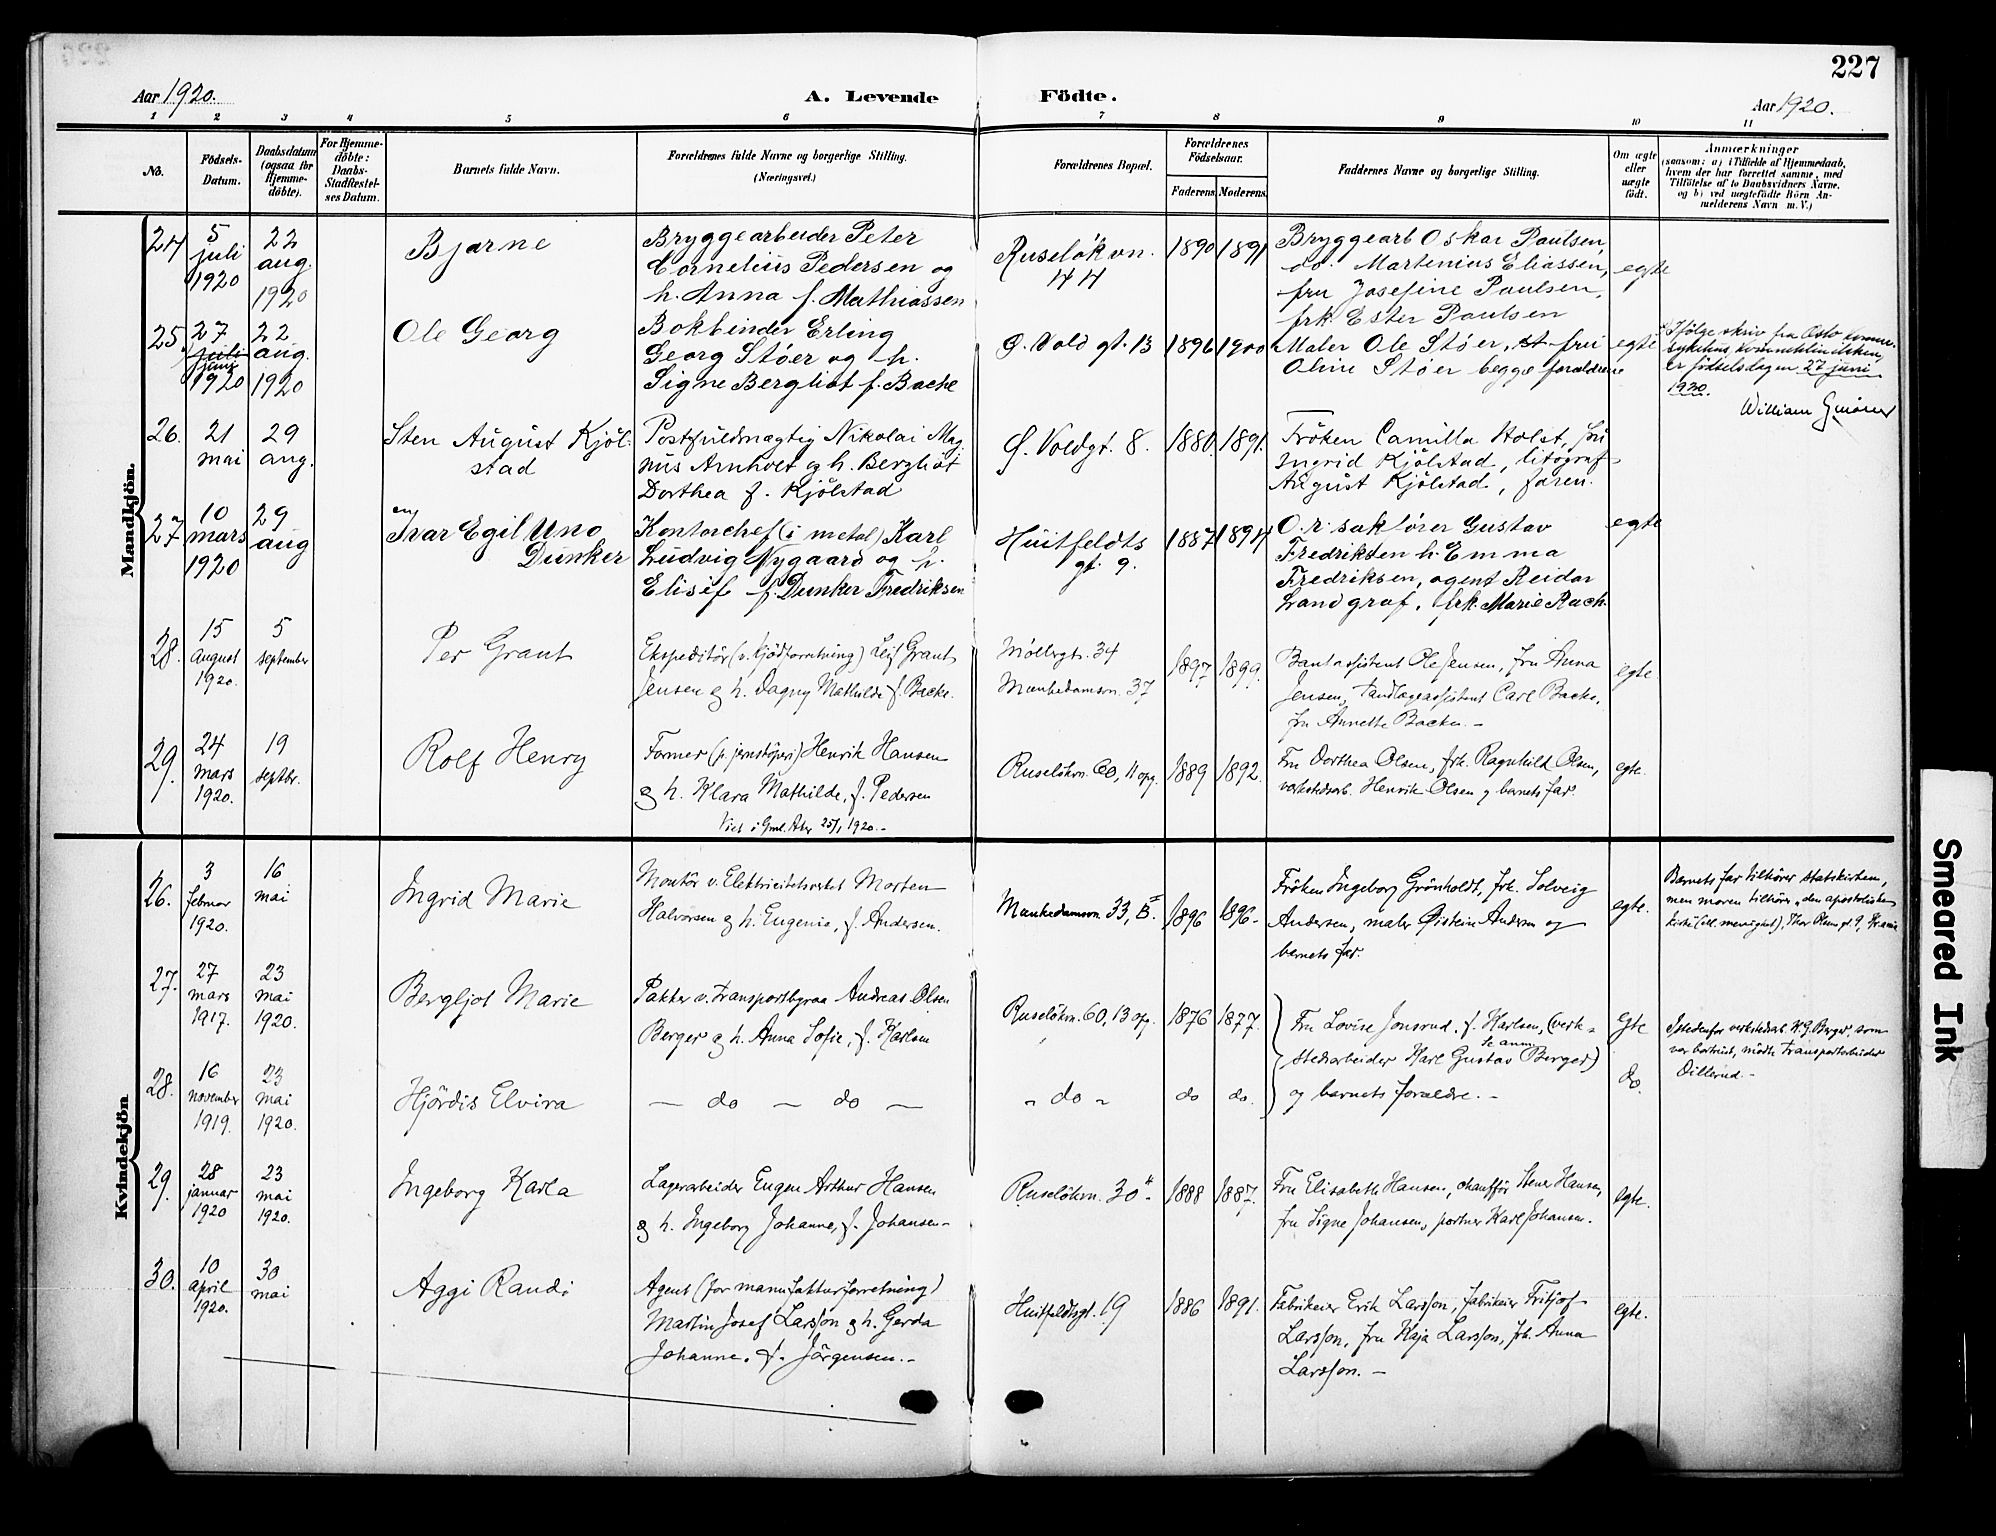 227
Aar 1920.
A. Levende Födte.
Aar 1920.
1 2 3 4 5 6 7 8 9 10 11
No.
Födsels-
Datum.
Daabsdatum
(ogsaa for
Hjemme-
döbte).
For Hjemme-
döbte:
Daabs-
Stadfæstel-
ses Datum.
Barnets fulde Navn.
Forældrenes fulde Navne og borgerlige Stilling.
(Næringsvei.)
Forældrenes Bopæl.
Forældrenes
Födselsaar.
Faderens. Moderens.
Faddernes Navne og borgerlige Stilling.
Om ægte
eller
uægte
födt.
Anmærkninger
(saasom: a) i Tilfælde af Hjemmedaab,
hvem der har forrettet samme, med
Tilföielse af to Daabsvidners Navne,
og b) ved uægtefödte Börn An-
melderens Navn m. V.)
Mandkjön.
24
5
juli
1920
22
aug.
1920
Bjarne
Bryggearbeider Peter
Cornelius Pedersen og
h. Anna f. Mathiassen
Ruselökvn.
44
1890
1891
Bryggearb Oskar Paulsen,
do. Martenius Eliassen,
fru Josefine Paulsen,
frk. Ester Paulsen
egte
25
27
juli
juni
1920
22
aug.
1920
Ole Georg
Bokbinder Erling
Georg Stöer og h.
Signe Bergliot f. Bache
Ø. Vold gt. 13
1896
1900
Maler Ole Stöer, fru
Oline Stöer begge forældrene
egte
Ifölge skriv fra Oslo komm.
sykehus, kvindeklinikken,
er födselsdagen 27 juni
1920.
William
26.
21
mai
29
aug.
Sten August Kjöl-
stad
Postfuldmægtig Nikolai Mag
nus Arnholt og h. Bergliot
Dorthea f. Kjölstad
Ø. Voldgt. 8.
1880.
1891.
Fröken Camilla Holst, fru
Ingrid Kjölstad, litograf
August Kjölstad, faren.
27
10
mars
1920
29
aug
Ivar Egil Uno
Dunker
Kontorchef (i metal) Karl
Ludvig Nygaard og h.
Elisif f. Dunker Fredriksen
Huitfeldts
gt. 9.
1887
1894
O. r. sakförer Gustav
Fredriksen h. Emma
Fredriksen, agent Reidar
Landgraf, frk. Marie Rach.
egte
28.
15
August
1920.
5
september
Per Grant
Ekspeditör (v. kjödforretning) Leif Grant
Jensen og h. Dagny Mathilde f. Backe.
Möllergt. 34
Munkedamsvn. 37
1897
1899.
Bankassistent Ole Jensen, fru Anna
Jensen, tandlægeassistent Carl Backe,
fru Annette Backe. –
egte.
29.
24
mars
1920.
19
septbr.
Rolf Henry
Former (p. jernstöperi) Henrik Hansen
og h. Klara Mathilde, f. Pedersen
Viet i Gml. Aker 25/1 1920. –
Ruselökvn. 60, 11 opg.
1889
1892.
Fru Dorthea Olsen, frk. Ragnhild Olsen,
verkstedsarb. Henrik Olsen og barnets far.
egte.
Kvindekjön
26.
3
februar
1920.
16
mai
Ingrid Marie
Montör v. Elektricitetsverket Morten
Halvorsen og h. Eugenie, f. Andersen.
Munkedamsvn. 33, B. II
1896
1896–
Fröken Ingeborg Grönholdt, frk. Solveig
Andersen, maler Øistein Andersen og
barnets far.
egte.
Barnets far tilhörer statskirken,
men moren tilhörer „den apostoliske
kirke (ell. menighet), Thor Olsens gt. 9, Kr.ania
27.
27
mars
1917.
23
mai
1920.
Bergljot Marie
Pakker v. transportbyraa Andreas Olsen
Berger og h. Anna Sofie, f. Karlsen
Ruselökvn. 60, 13 opg.
1876
1877.
Fru Lovise Jonsrud, f. Karlsen, (verk-
Se anm.
stedsarbeider Karl Gustav Berger)
og barnets forældre. –
Egte
Istedenfor verkstedsarb. K. G. Berger, som
var bortreist, mödte transportarbeider
Dillerud. –
28.
16
november
1919.
23
mai
1920.
Hjördis Elvira
— do — do —
„ do „
do
do.
do.
29.
28
januar
1920
23
mai
1920.
Ingeborg Karla
Lagerarbeider Eugen Arthur Hansen
og h. Ingeborg Johanne, f. Johansen–
Ruselökvn. 30 II.
1888
1887.
Fru Elisabeth Hansen, chaufför Stener Hansen,
fru Signe Johansen, portner Karl Johansen.
egte.
30.
10
april
1920.
30
mai
Aggi Randi
Agent (for manufakturforretning)
Martin Josef Larsson og h. Gerda
Johanne, f. Jörgensen. –
Huitfeldtsgt. 19
1886
1891.
Fabrikeier Erik Larsson, fabrikeier Fritjof
Larsson, fru Kaja Larsson, frk. Anna
Larsson. –
egte.
Smeared Ink